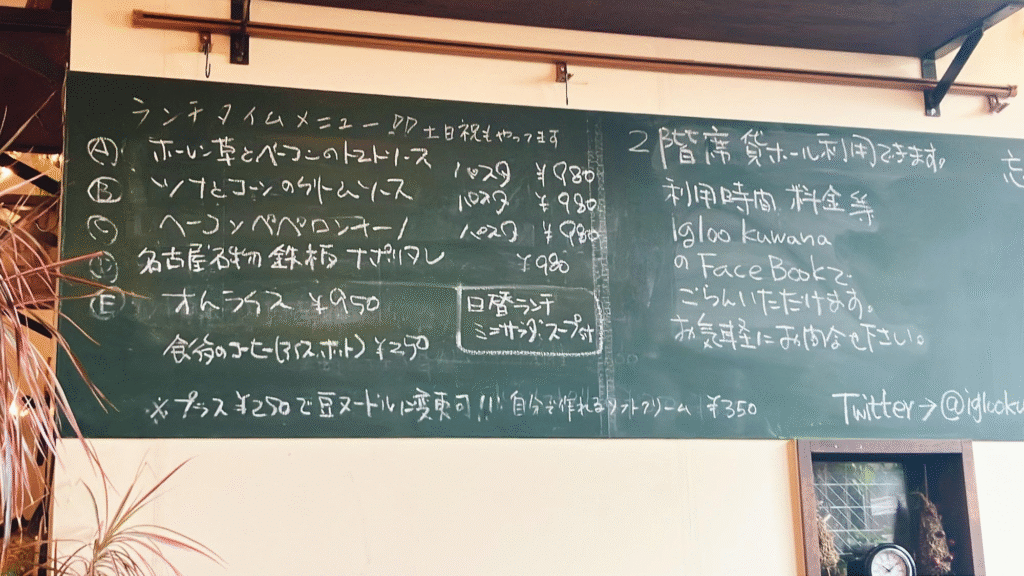 ランチタイムメニュー 土日祝もやってます
Ⓐ ホーレン草とベーコンのトマトソース パスタ ¥980
Ⓑ ツナとコーンのクリームソース パスタ ¥980
Ⓒ ベーコンペペロンチーノ パスタ ¥980
Ⓓ 名古屋名物 鉄板ナポリタン ¥980
Ⓔ オムライス ¥950
食後のコーヒー(アイス,ホット) ¥250
日替ランチ
ミニサラダ・スープ付
※プラス¥250で豆ヌードルに変更可!! 自分で作れるソフトクリーム ¥350
2階席貸ホール利用できます。
利用時間 料金等
igloo kuwana
の FaceBookで
ごらんいただけます。
お気軽にお問合せ下さい。
Twitter→@iglooku
忘